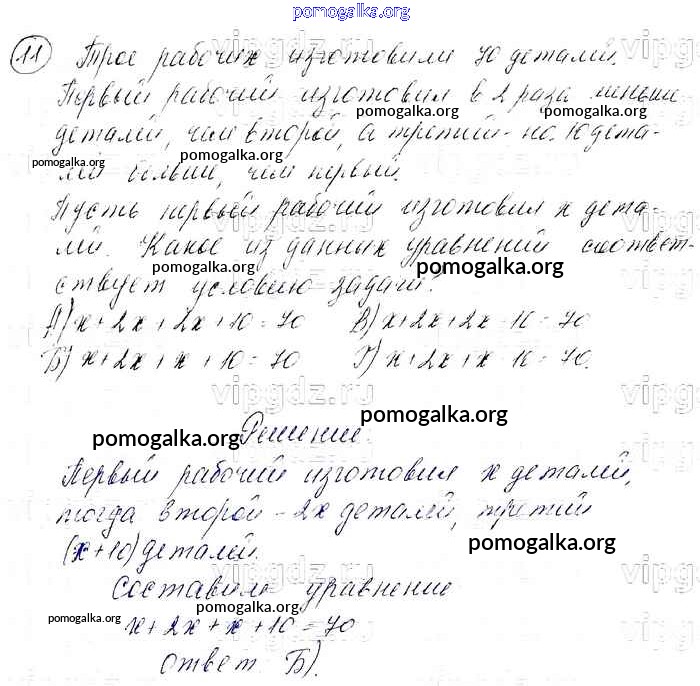 pomogalka.org
11 Трое рабочих изготовили 70 деталей.
Первый рабочий изготовил в 2 раза меньше
pomogalka.org pomogalka.org
деталей, чем второй, а третий - на 10 дета-
pomogalka.org pomogalka.org
лей больше, чем первый.
Пусть первый рабочий изготовил х дета-
лей. Какое из данных уравнений соответ-
pomogalka.org pomogalka.org
ствует условию задачи?
А) х + 2х + 2х + 10 = 70 В) х + 2х + 2х - 10 = 70
Б) х + 2х + х + 10 = 70 Г) х + 2х + х - 10 = 70.
vipgdz.ru
pomogalka.org
pomogalka.org Решение.
Первый рабочий изготовил х деталей,
тогда второй - 2х деталей, третий
(х + 10) деталей.
pomogalka.org
Составим уравнение
pomogalka.org
pomogalka.org
х + 2х + х + 10 = 70
Ответ: Б).